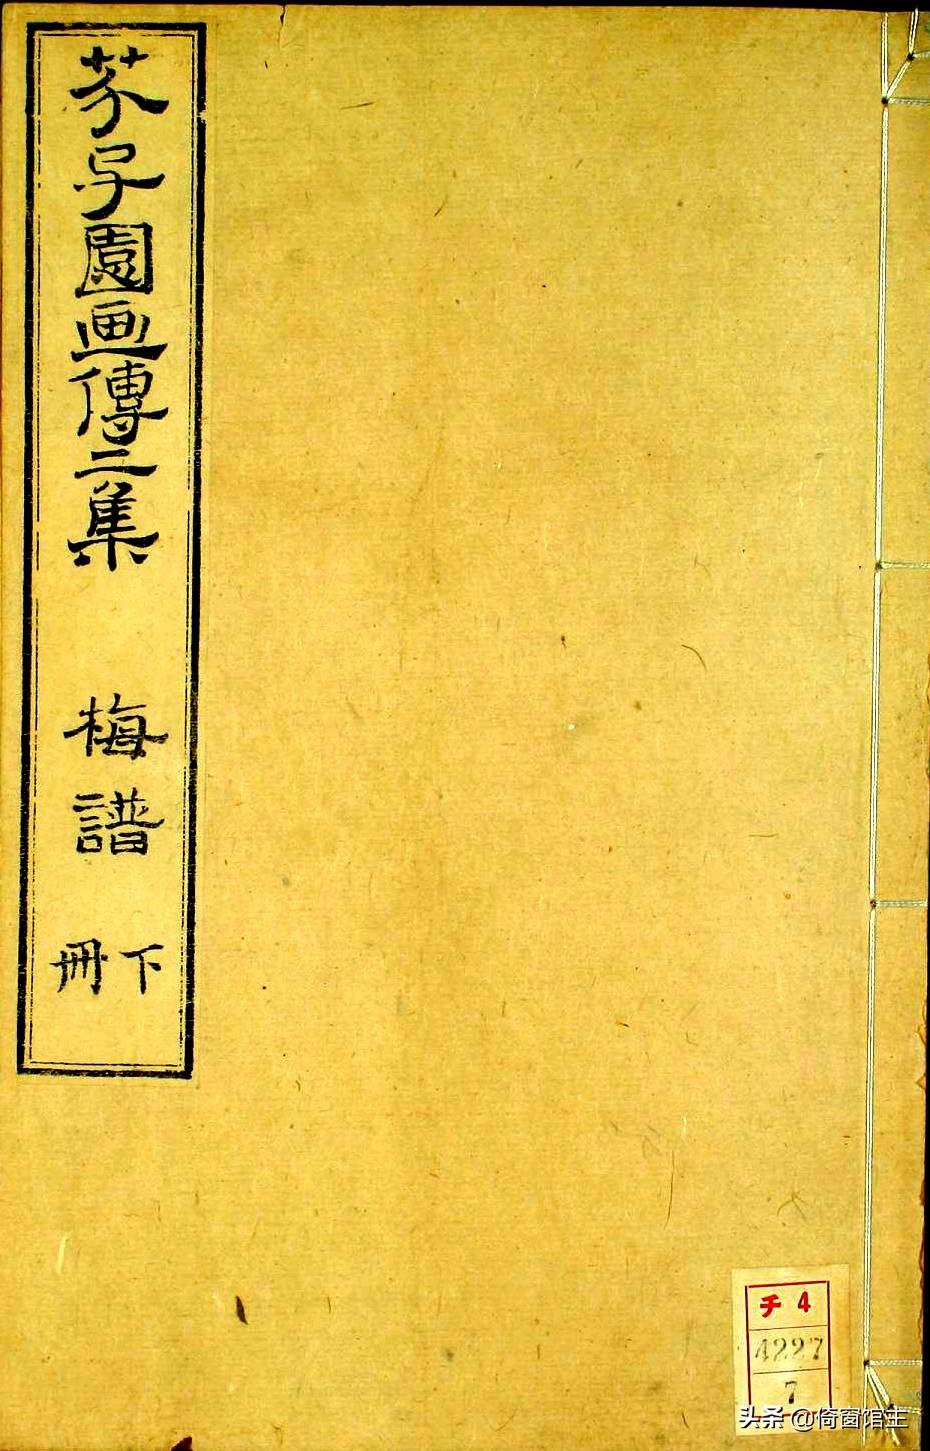 芥子園画傳二集 梅譜 下冊
チ 4
4227
7
头条 @倚窗馆主